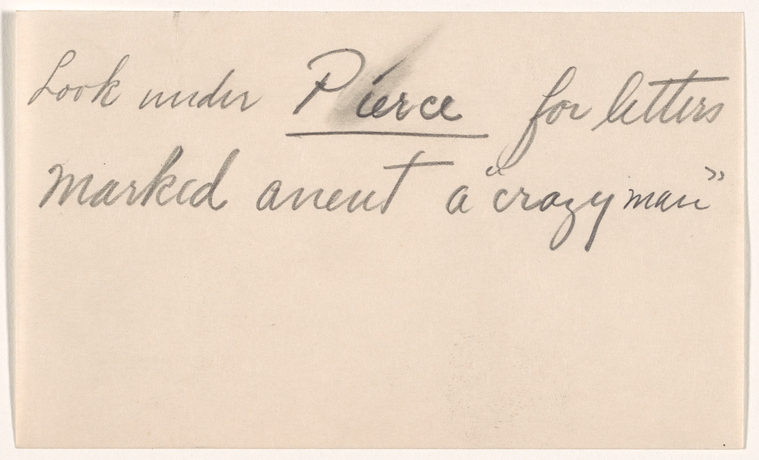 Look under Pierce for letters
marked anent a "crazy man"